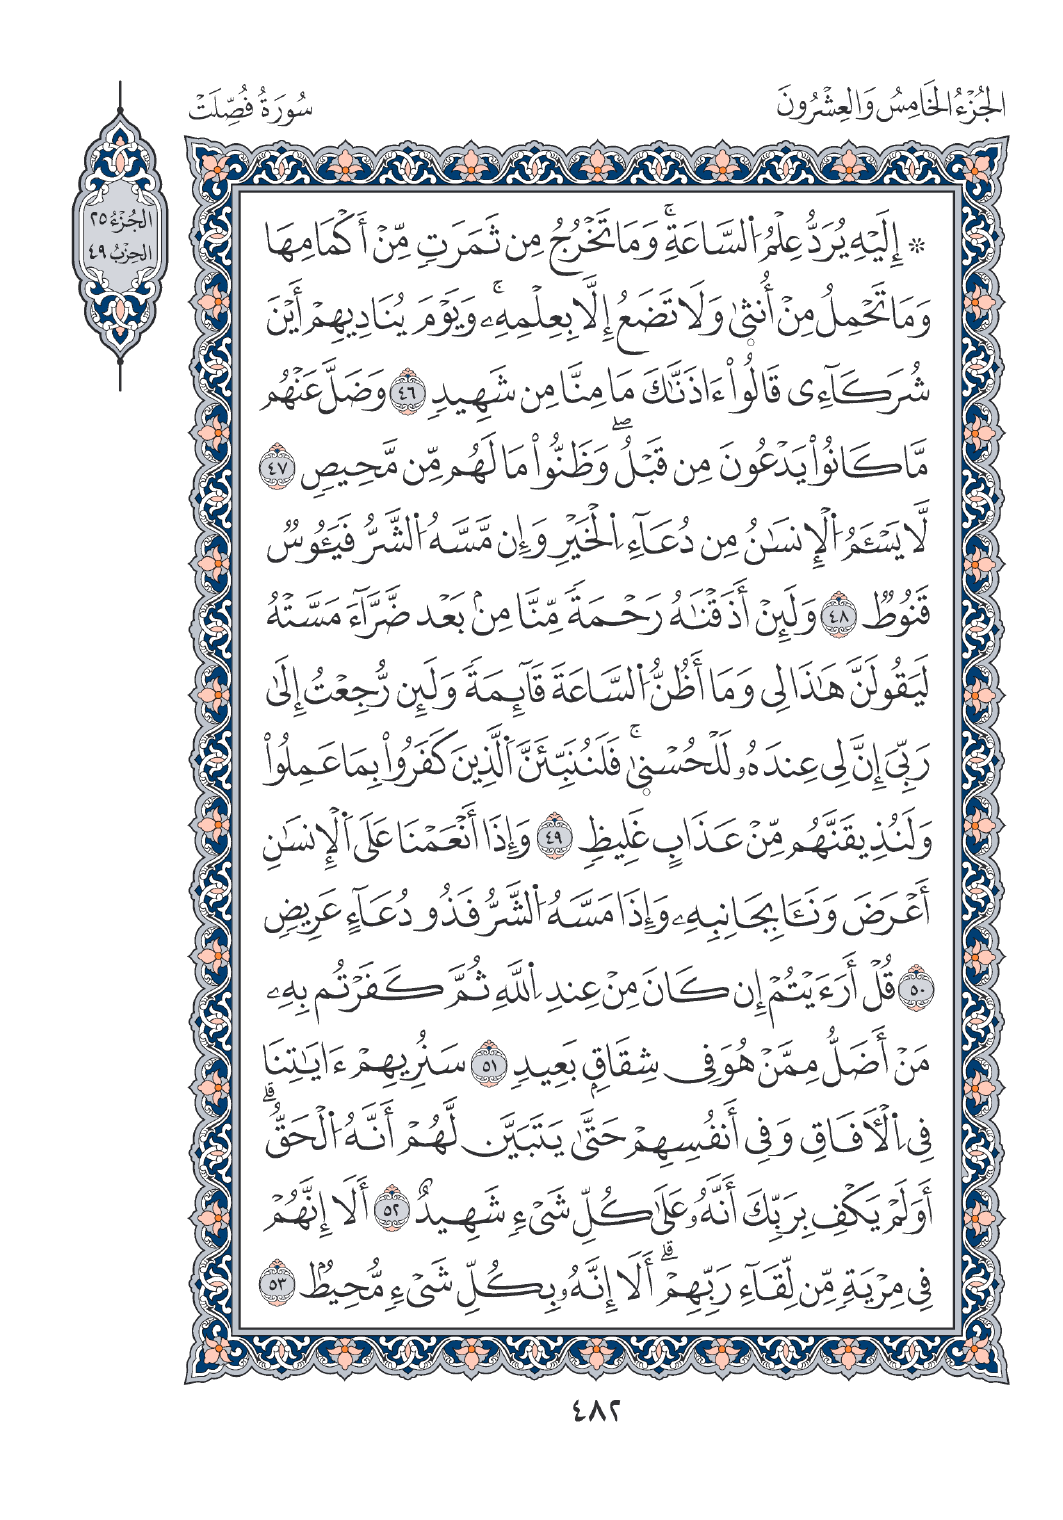 الجُزْءُ الخَامِسُ وَالعِشْرُونَ
سُورَةُ فُصِّلَتْ
الجُزْءُ ٢٥
الحِزْبُ ٤٩
۞ إِلَيْهِ يُرَدُّ عِلْمُ اُ۬لسَّاعَةِۚ وَمَا تَخْرُجُ مِن ثَمَرَتٍ مِّنْ أَكْمَامِهَا
وَمَا تَحْمِلُ مِنْ أُنث۪ىٰ وَلَا تَضَعُ إِلَّا بِعِلْمِهِۦۚ وَيَوْمَ يُنَادِيهِمْ أَيْنَ
شُرَكَآءِى قَالُواْ ءَاذَنَّٰكَ مَا مِنَّا مِن شَهِيدٍ ٤٦ وَضَلَّ عَنْهُم
مَّا كَانُواْ يَدْعُونَ مِن قَبْلُۖ وَظَنُّواْ مَا لَهُم مِّن مَّحِيصٍ ٤٧
لَّا يَسْـَٔمُ اُ۬لْإِنسَٰنُ مِن دُعَآءِ اِ۬لْخَيْرِ وَإِن مَّسَّهُ اُ۬لشَّرُّ فَيَـُٔوسٌ
قَنُوطٌ ٤٨ وَلَئِنْ أَذَقْنَٰهُ رَحْمَةً مِّنَّا مِنۢ بَعْد ضَّرَّآءَ مَسَّتْهُ
لَيَقُولَنَّ هَٰذَا لِى وَمَا أَظُنُّ اُ۬لسَّاعَةَ قَآئِمَةً وَلَئِن رُّجِعْتُ إِلَىٰ
رَبِّىَ إِنَّ لِى عِندَهُۥ لَلْحُسْن۪ىٰۚ فَلَنُنَبِّئَنَّ اَ۬لَّذِينَ كَفَرُواْ بِمَا عَمِلُواْ
وَلَنُذِيقَنَّهُم مِّنْ عَذَابٍ غَلِيظٍ ٤٩ وَإِذَا أَنْعَمْنَا عَلَى اَ۬لْإِنسَٰنِ
أَعْرَضَ وَنَـَٔا بِجَانِبِهِۦ وَإِذَا مَسَّهُ اُ۬لشَّرُّ فَذُو دُعَآءٍ عَرِيضٍ
٥٠ قُلْ أَرَءَيْتُمْ إِن كَانَ مِنْ عِندِ اِ۬للَّهِ ثُمَّ كَفَرْتُم بِهِۦ
مَنْ أَضَلُّ مِمَّنْ هُوَ فِى شِقَاقٍۭ بَعِيدٍ ٥١ سَنُرِيهِمْ ءَايَٰتِنَا
فِى اِ۬لْأٓفَاقِ وَفِى أَنفُسِهِمْ حَتَّىٰ يَتَبَيَّن لَّهُمْ أَنَّهُ اُ۬لْحَقُّۗ
أَوَلَمْ يَكْفِ بِرَبِّكَ أَنَّهُۥ عَلَىٰ كُلِّ شَىْءٍ شَهِيدٌ ٥٢ أَلَا إِنَّهُمْ
فِى مِرْيَةٍ مِّن لِّقَآءِ رَبِّهِمْۗ أَلَا إِنَّهُۥ بِكُلِّ شَىْءٍ مُّحِيطٌۢ ٥٣
٤٨٢